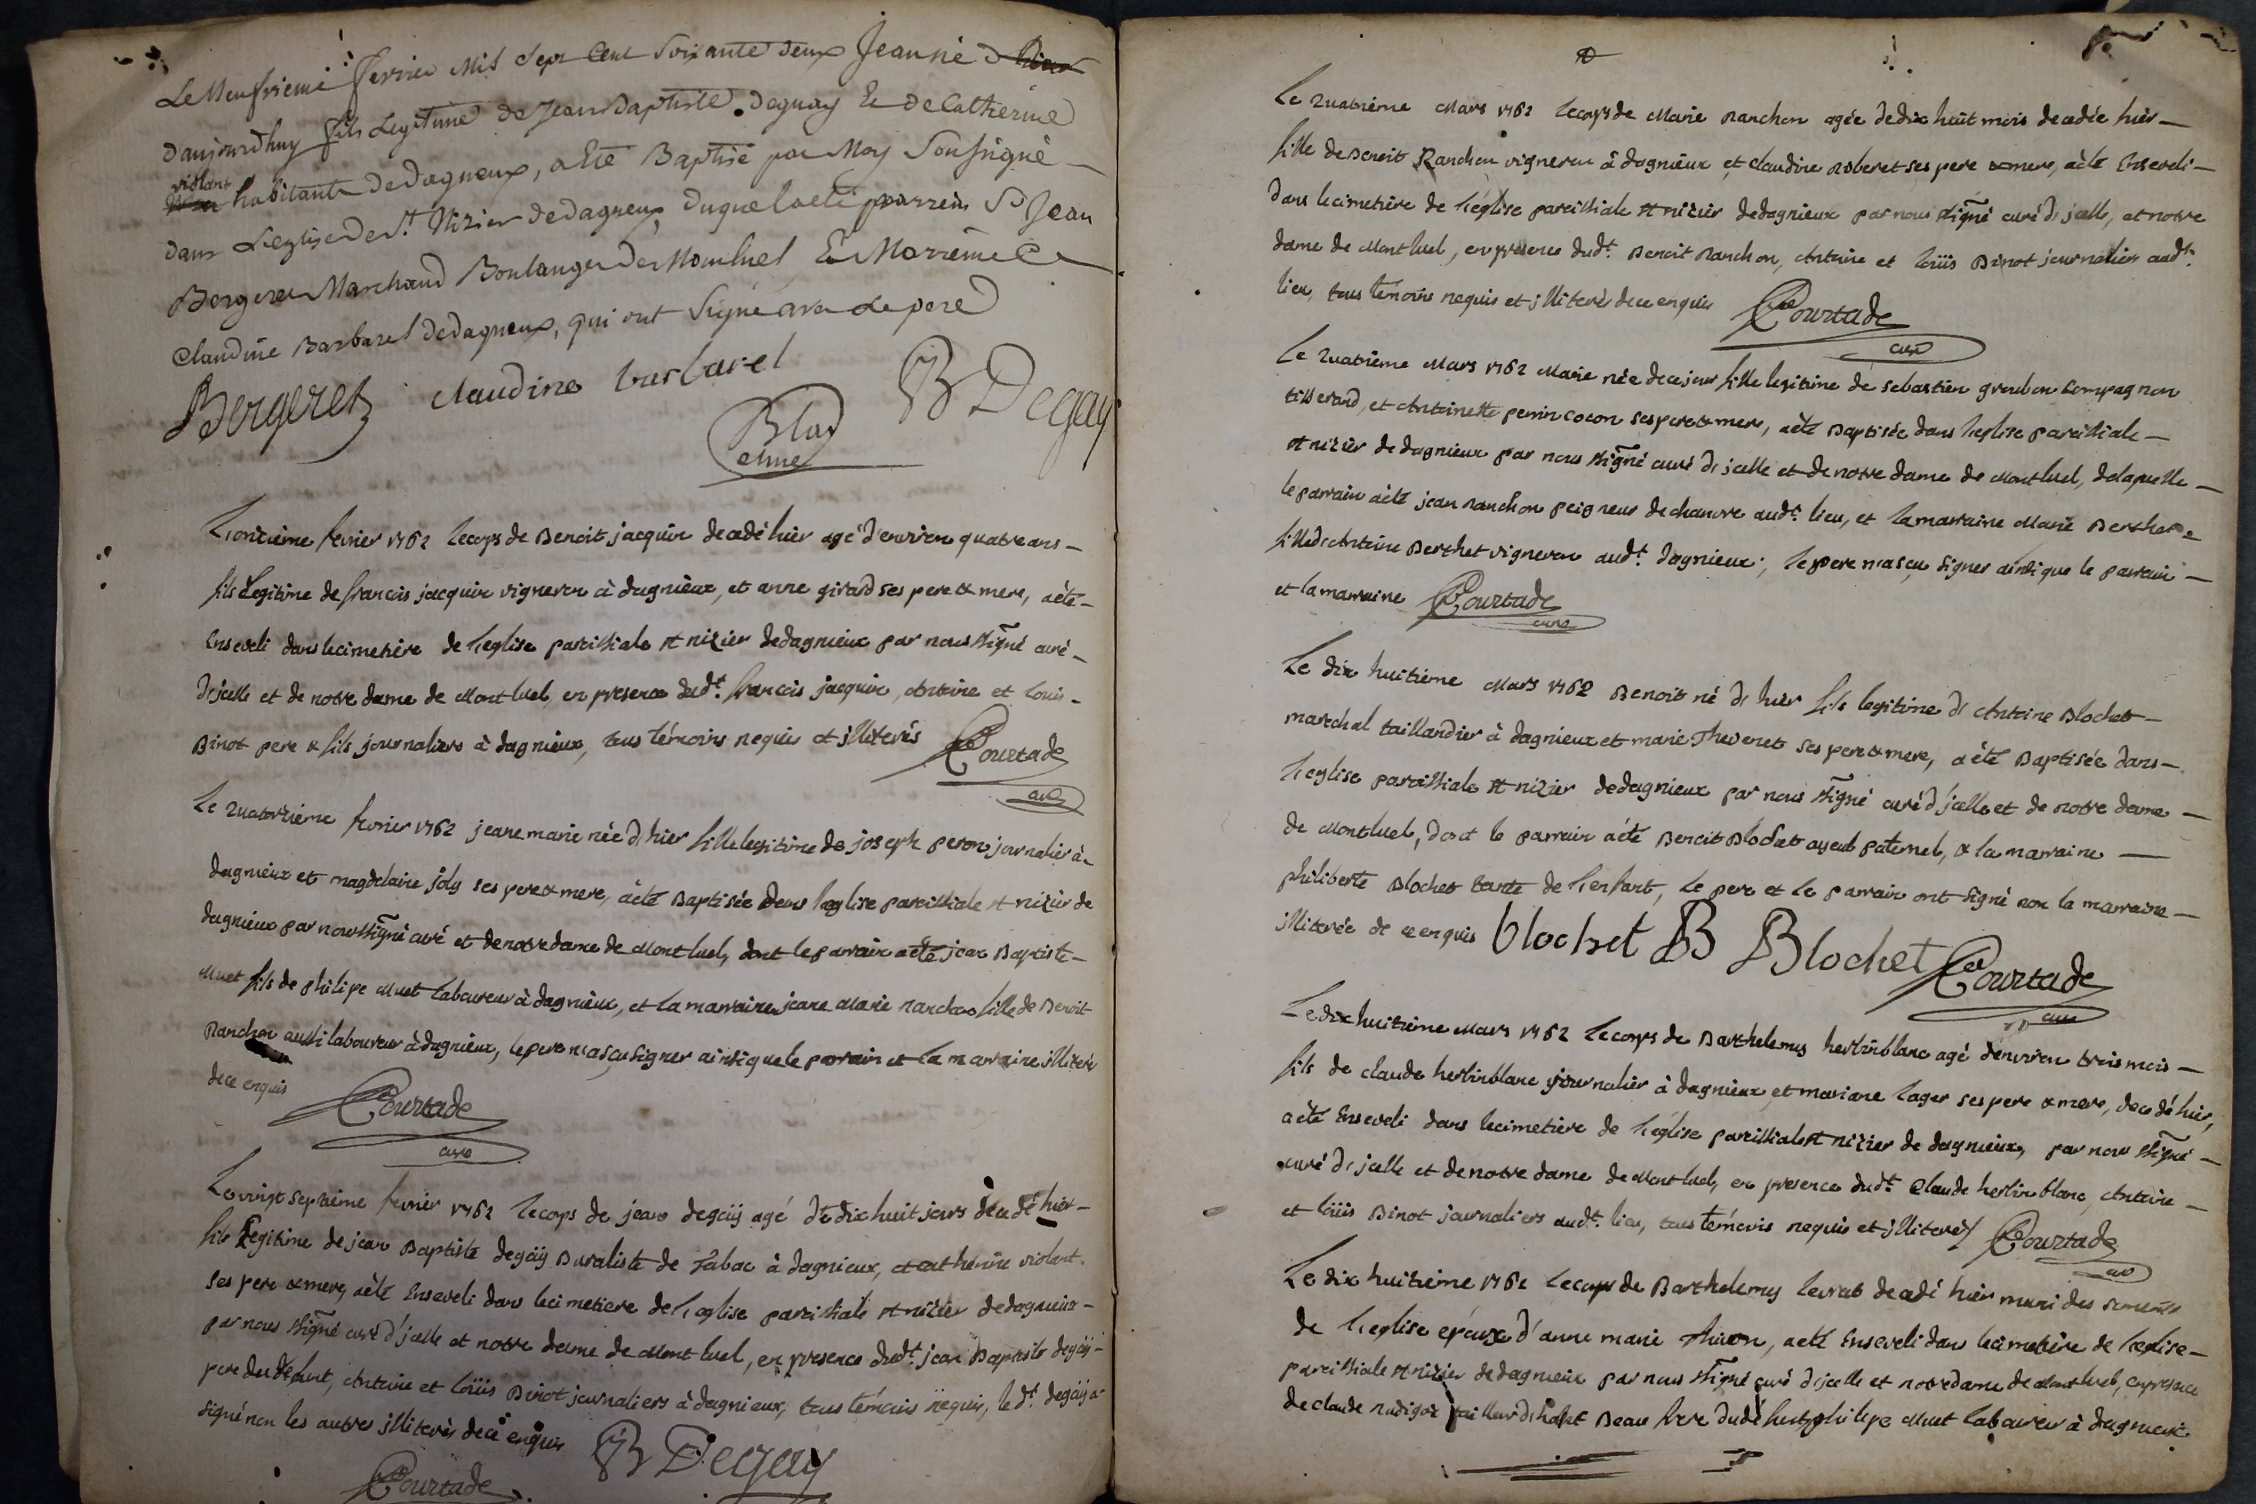 Le Neufvieme fevrier Mil Sept Cent Soixante deux Jean né d
daujourdhuy fils Legitime de Jean Baptiste deguay Et de Catherine
violant habitants de dagneux, a Eté Baptisé par Moy Soussigné
dans L'eglise de St. Nizier de dagneux, duquel a eté parrein Sr Jean
Bergeret Marchand Boulanger de Monluel Et Marreine
Claudine Barbarel de dagneux, qui ont Signé avec Le pere
Bergeret claudine barbarel JB Degay
Le onzieme fevrier 1762 le corps de Benoit jacquin decedé hier agé d'environ quatre ans
fils legitime de francois jacquin vigneron à dagnieux, et anne girard ses pere & mere, a été
Enseveli dans le cimetière de l'eglise paroissiale st nizier de dagnieux par nous ssigné curé
d'icelle et de notre dame de Mont luel en presence dudt. francois jacquin, Antoine et Louis
Binot pere & fils journaliers à dagnieux, tous témoins requis et illiterés Courtade
curé
Le quatorzieme fevrier 1762 jeane marie née d'hier fille legitime de joseph peron journalier à
dagnieux et magdelaine joly ses pere & mere, a été Baptisée dans l'eglise paroissiale st nizier de
dagnieux par nous ssigné curé et de notre dame de Mont luel, dont le parrain a été jean Baptiste
Muet fils de philipe Muet laboureur à dagnieux, et la marraine jeane Marie ranchon fille de Benoit
Ranchon aussi laboureur à dagnieux, le pere n'a sçu signer ainsi que le parrain et la marraine illiteré
de ce enquis Courtade
curé
Le vingt septieme fevrier 1762 le corps de jean degaÿ agé de dix huit jours decedé hier
fils legitime de jean Baptiste degaÿ Buraliste de Tabac à dagnieux, et catherine violant
ses pere & mere, a été Enseveli dans le cimetiere de l'eglise paroissiale st nizier de dagnieux
par nous ssigné curé d'icelle et notre dame de Mont luel, en presence dudt. jean Baptiste degaÿ
pere du défunt, Antoine et loüis Binot journaliers à dagnieux, tous témoins requis, le dt. degaÿ a
signé non les autres illiterés de ce enquis JB Degay
Courtade
Le quatrième Mars 1762 le corps de Marie Ranchon agée de dix huit mois decedée hier
fille de Benoit Ranchon vigneron à dagnieux et claudine Roberet ses pere & mere, a été Enseveli
dans le cimetière de l'église paroissiale st nizier de dagnieux par nous ssigné curé d'icelle, et notre
dame de Mont luel, en presence dudt. Benoit Ranchon, Antoine et loüis Binot journalier audt.
lieu, tous témoins requis et illiterés de ce enquis Courtade
curé
Le quatrième Mars 1762 Marie née de ce jour fille legitime de sebastien compagnon
tisserand, et Antoinette perrin cocon ses pere & mere, a été Baptisée dans l'eglise paroissiale
st nizier de dagnieux par nous ssigné curé d'icelle et de notre dame de Mont luel, de laquelle
le parrain a été jean Ranchon peigneur de chanvre audt. lieu, et la marraine Marie Berthet
fille d'Antoine Berthet vigneron audt. dagnieux, le pere n'a sçu signer ainsi que le parrain
et la marraine Courtade
curé
Le dix huitième Mars 1762 Benoit né d'hier fils legitime d'Antoine Blochet
marechal taillandier à dagnieux et marie Thevenet ses pere & mere, a été Baptisée dans
l'eglise paroissiale st nizier de dagnieux par nous ssigné curé d'icelle et de notre dame
de Mont luel, dont le parrain a été Benoit Blochet ayeul paternel, & la marraine
philiberte Blochet tante de l'enfant, le pere et le parrain ont signé non la marraine
illiterée de ce enquis blochet B B Blochet Courtade
curé
Le dix huitième Mars 1762 le corps de Barthelemy herlinblanc agé d'environ trois mois
fils de claude herlinblanc journalier à dagnieux et mariane lager ses pere & mere, decedé hier,
a été Enseveli dans le cimetière de l'église paroissiale st nizier de dagnieux, par nous ssigné
curé d'icelle et de notre dame de Mont luel, en presence dudt. Claude herlinblanc, Antoine
et loüis Binot journaliers audt. lieu, tous témoins requis et illiterés Courtade
curé
Le dix huitième 1762 le corps de Barthelemy levrat decedé hier muni des sacrements
de l'eglise epoux d'anne marie, a été Enseveli dans le cimetière de l'eglise
paroissiale st nizier de dagnieux par nous ssigné curé d'icelle et notre dame de Mont luel, en presence
de claude tailleur d'habit Beau frere du défunt, philipe Muet laboureur à dagnieux